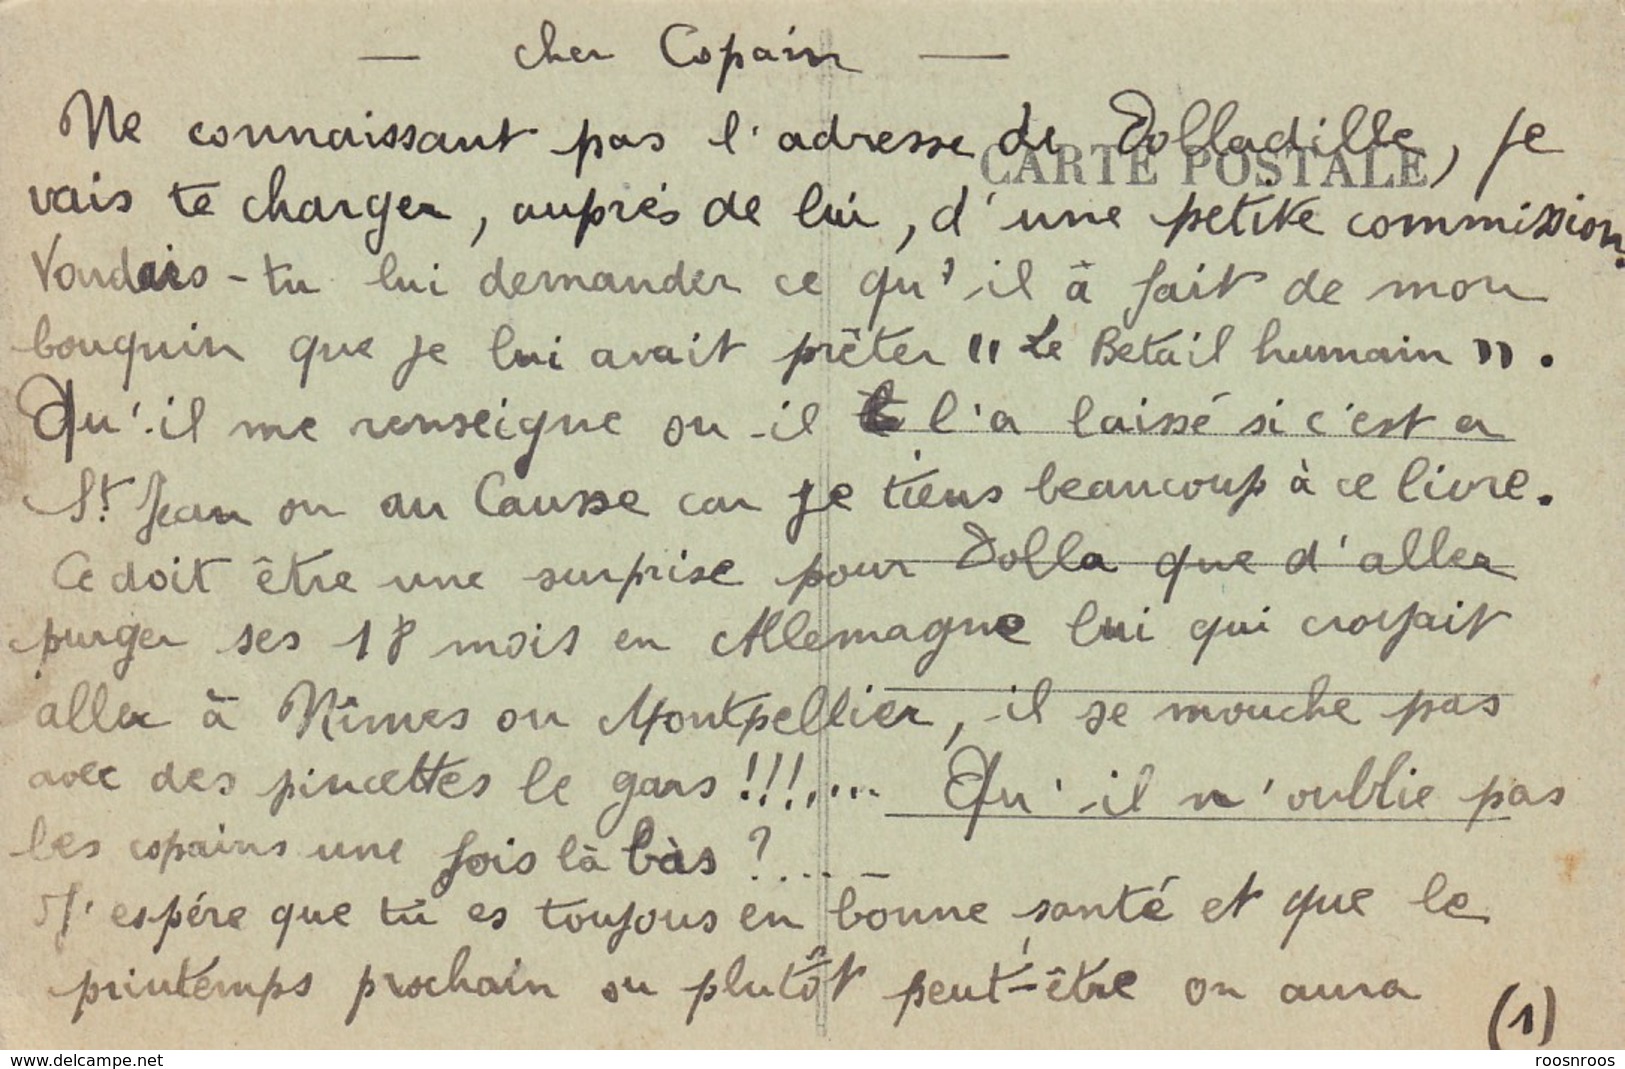 — cher Copain —
CARTE POSTALE
Ne connaissant pas l'adresse de Dolladille, je
vais te charger, auprés de lui, d'une petite commission.
Voudais-tu lui demander ce qu'il à fait de mon
bouquin que je lui avait prêter "Le Betail humain".
Qu'il me renseigne ou il l'a laissé si c'est a
St. Jean ou au Causse car je tiens beaucoup à ce livre.
Ce doit être une surprise pour Dolla que d'aller
purger ses 18 mois en Allemagne lui qui croyait
aller à Nîmes ou Montpellier, il se mouche pas
avec des pincettes le gars !!!.... Qu'il n'oublie pas
les copains une fois là bàs ?....
J'espére que tu es toujous en bonne santé et que le
printemps prochain ou plutôt peut-être on aura
(1)
www.delcampe.net
roosnroos